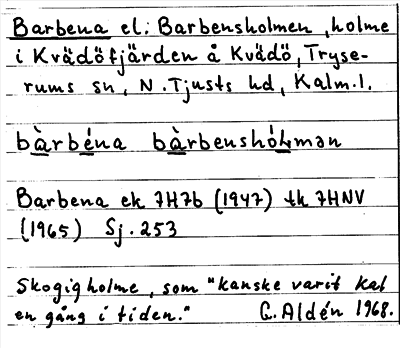 Barbena el. Barbensholmen, holme
i Kvädöfjärden å Kvädö, Tryse-
rums sn, N. Tjusts hd, Kalm. l.
bàrbéna bàrbenshól̥mən
Barbena ek 7H7b (1947) tk 7HNV
(1965) Sj. 253
Skogig holme, som "kanske varit kal
en gång i tiden." G. Aldén 1968.